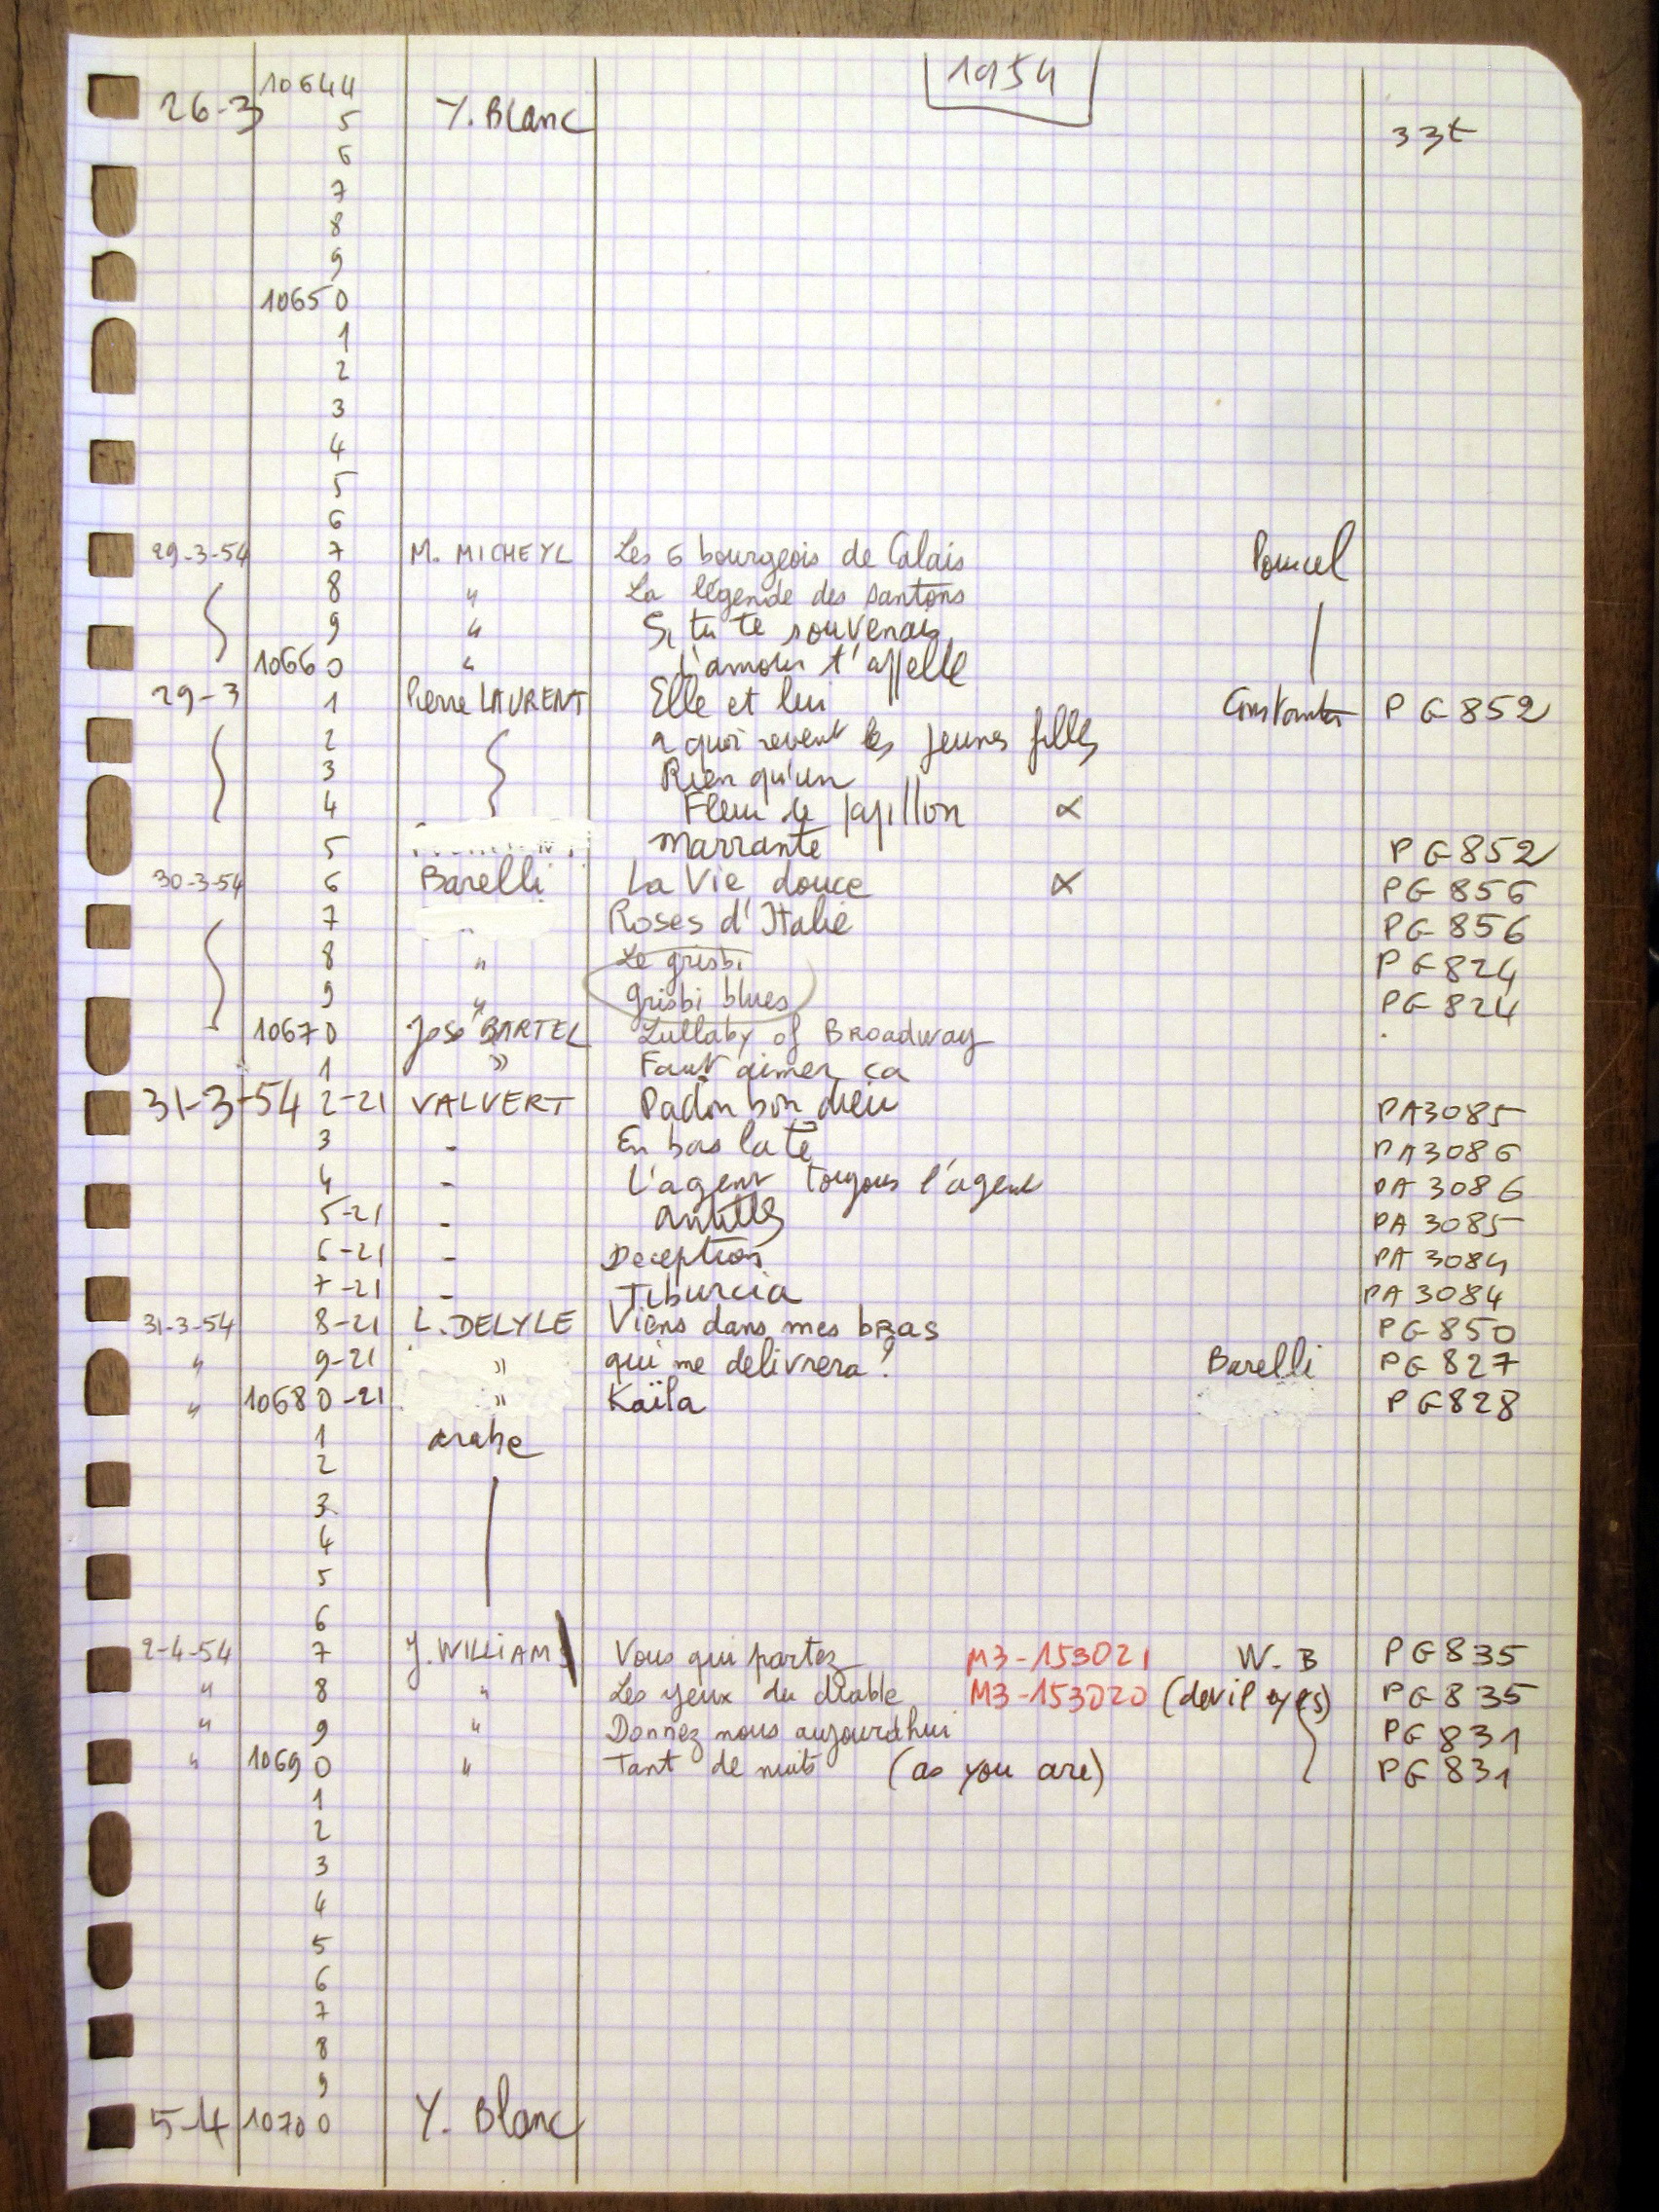 1954
10644
26-3 5 Y. Blanc 33t
6
7
8
9
10650
1
2
3
4
5
6
29-3-54 7 M. MICHEYL Les 6 bourgeois de Calais Pourcel
8 " La légende des santons
9 " Si tu te souvenais
10660 " L'amour t'appelle
29-3 1 Pierre LAURENT Elle et lui PG852
2 a quoi revent les jeunes filles
3 Rien qu'un
4 Fleur de papillon ∝
5 Marrante PG852
30-3-54 6 Barelli La Vie douce ∝ PG856
7 Roses d'Italie PG856
8 " Le grisbi PG824
9 " Grisbi blues PG824
10670 José BARTEL Lullaby of Broadway
1 " Faut aimer ca
31-3-54 2-21 VALVERT Padon bon dieu PA3085
3 - En bas la te PA3086
4 - L'agent toujous l'agent PA3086
5-21 - Antilles PA3085
6-21 - Deception PA3084
7-21 - Tiburcia PA3084
31-3-54 8-21 L. DELYLE Viens dans mes bras PG850
" 9-21 " qui me delivrera? Barelli PG827
" 10680-21 " Kaïla PG828
1 arabe
2
3
4
5
6
2-4-54 7 J. WILLIAMS Vous qui partez M3-153021 W.B PG835
" 8 " Les yeux du diable M3-153020 (devil eyes) PG835
" 9 " Donnez nous aujourdhui PG831
" 10690 " Tant de nuits (as you are) PG831
1
2
3
4
5
6
7
8
9
5-4 10700 Y. Blanc